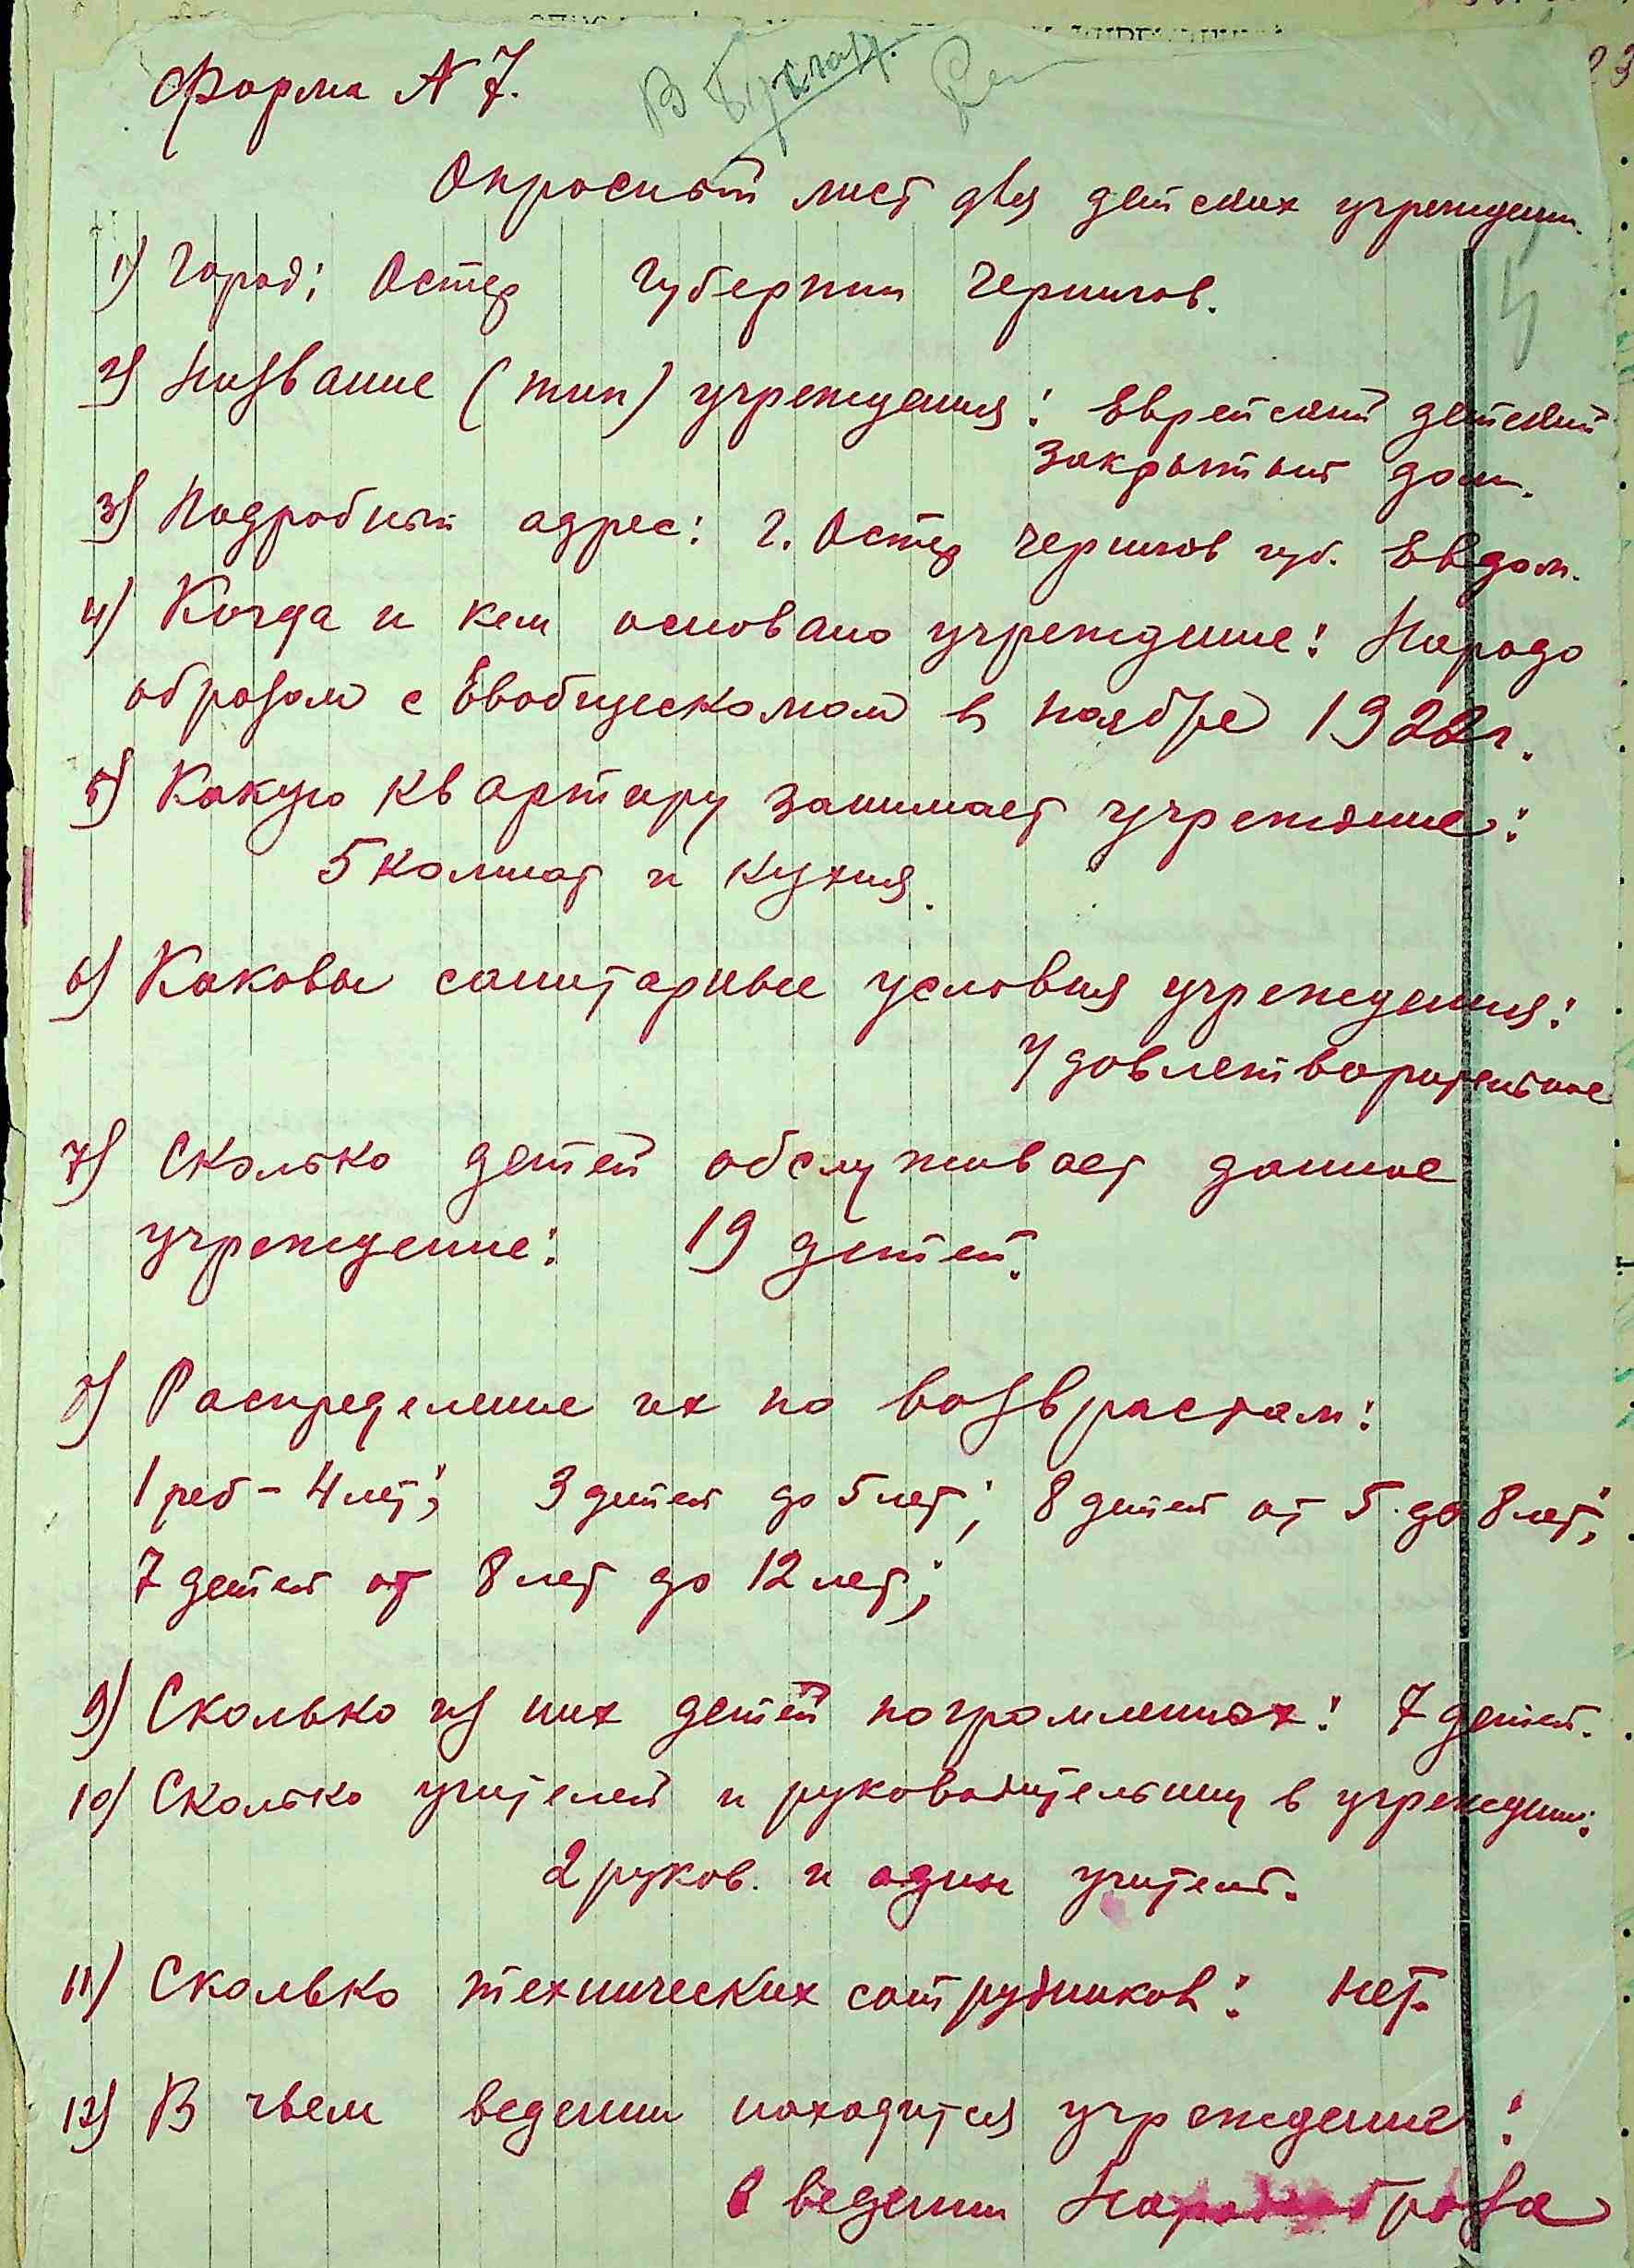 Форма № 7.
Опросный лист для детских учрежден.
1) Город: Остер Губернии Чернигов.
2) Название (тип) учреждения: Еврейский детский
закрытый дом.
3) Подробный адрес: г. Остер Чернигов губ. Евдом.
4) Когда и кем основано учреждение: Народо
образом с Евобщескомом в ноябре 1922 г.
5) Какую квартиру занимает учреждение:
5 комнат и кухня.
6) Каковы санитарные условия учреждения:
Удовлетворительные
7) Сколько детей обслуживает данное
учреждение: 19 детей.
8) Распределение их по возврастам:
1 реб – 4 лет; 3 детей до 5 лет; 8 детей от 5 до 8 лет;
7 детей от 8 лет до 12 лет;
9) Сколько из них детей погромленных: 7 детей.
10) Сколько учителей и руководительниц в учрежден:
2 руков. и один учитель.
11) Сколько технических сотрудников: нет.
12) В чьем ведении находится учреждение:
в ведении Наробраза